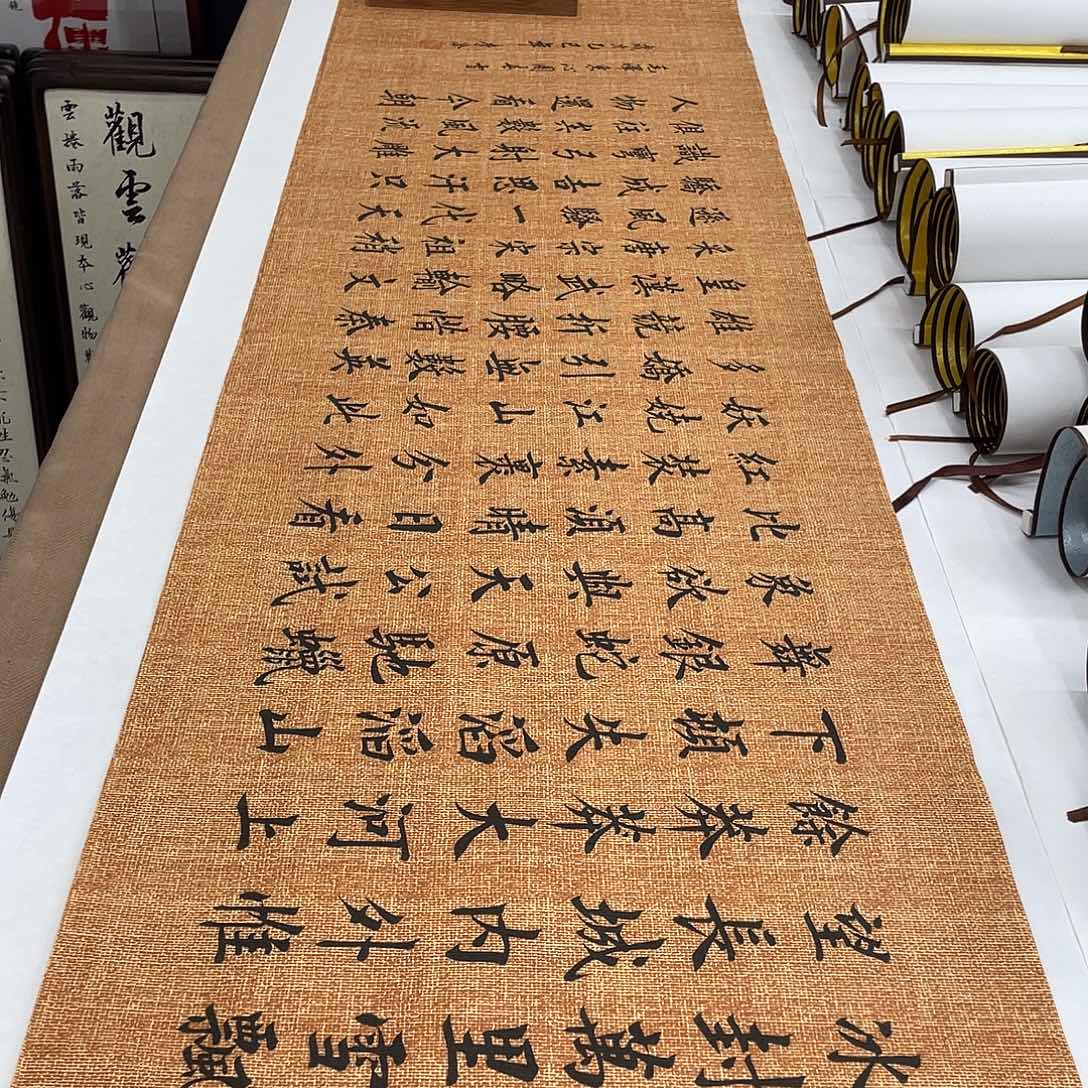 冰封萬里雪飄
望長城內外惟
餘莽莽大河上
下頓失滔滔山
舞銀蛇原馳蠟
象欲與天公試
比高須晴日看
紅裝素裹分外
妖嬈江山如此
多嬌引無數英
雄競折腰惜秦
皇漢武略輸文
采唐宗宋祖稍
遜風騷一代天
驕成吉思汗只
識彎弓射大雕
俱往矣數風流
人物還看今朝
毛澤東沁園春雪
觀雲
雲捲雨落皆現本心觀物